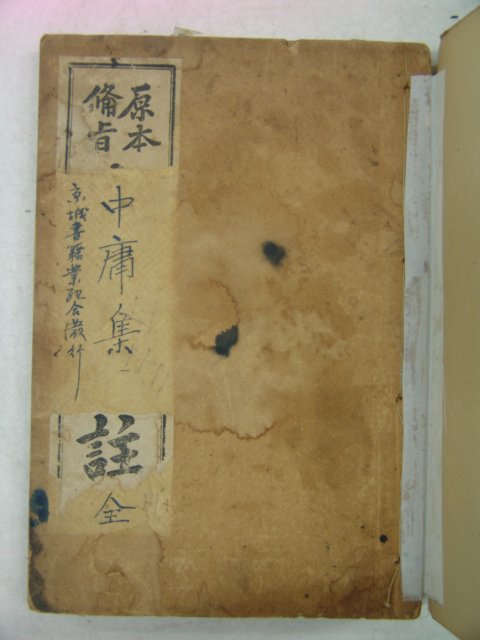 原本
備旨
中庸集
註
全
京城書籍業組合發行